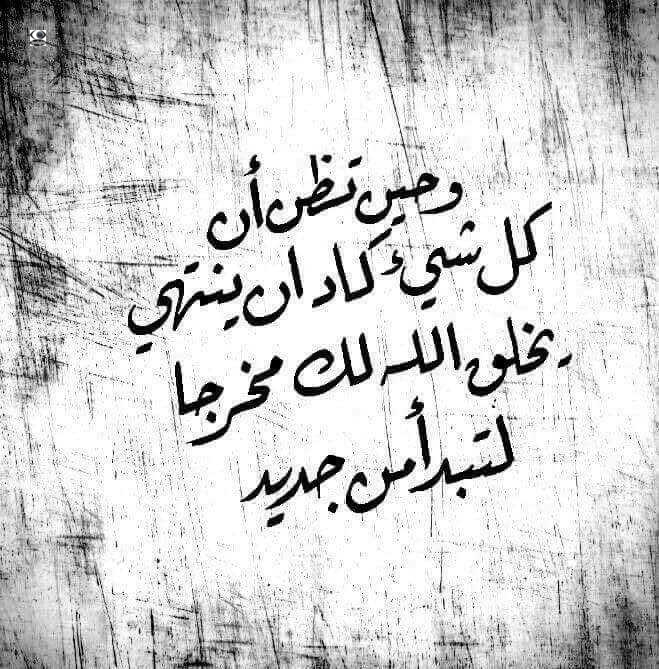 وحين تظن أن
كل شيء كاد ان ينتهي
يخلق الله لك مخرجا
لتبدأ من جديد